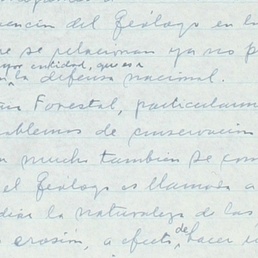 vención del Geólogo en los
se relacionan ya no p
cuya entidad, que es a
la defensa nacional.
Forestal, particularm
blemas de conservación
mucho también se con
el Geólogo es llamado a
diar la naturaleza de las
erosión, a efecto de hacer